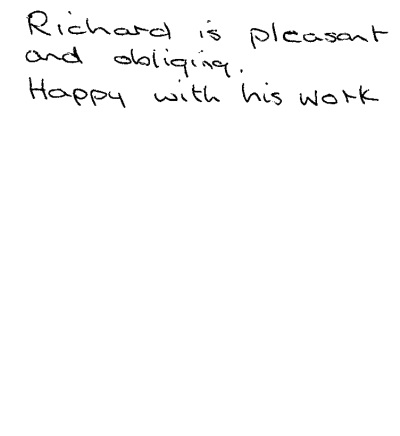 Richard is pleasant
and obliging.
Happy with his work